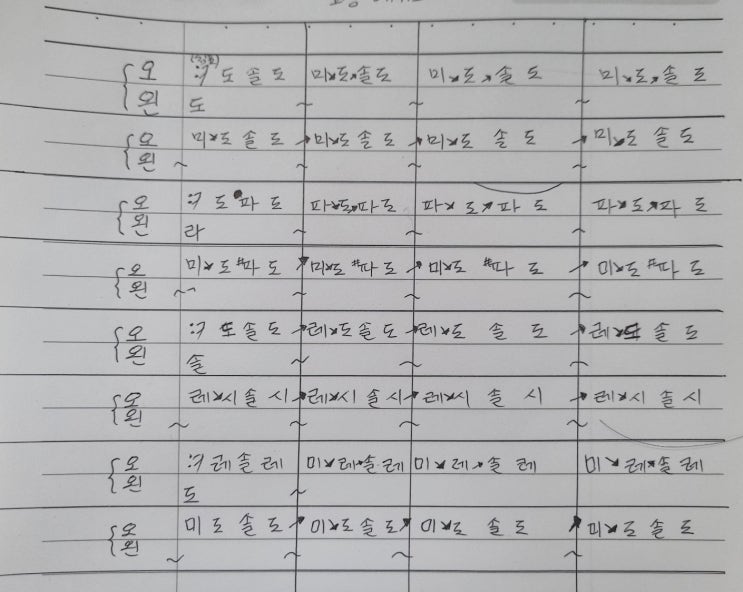 오 :7 도 솔 도 미↘도↗솔도 미↘도↗솔 도 미↘도↗솔 도
왼 도 ~ ~ ~
오 미↘도 솔 도 ↗미↘도 솔 도 ↗미↘도 솔 도 ↗미↘도 솔 도
왼 ~ ~ ~ ~
오 :7 도 파 도 파↘도↗파도 파↘도↗파 도 파↘도↗파 도
왼 라 ~ ~ ~
오 미↘도 #파 도 ↗미↘도 #파 도 ↗미↘도 #파 도 ↗미↘도 #파 도
왼 ~ ~ ~ ~
오 :7 도 솔 도 ↗레↘도 솔 도 ↗레↘도 솔 도 ↗레↘도 솔 도
왼 솔 ~ ~ ~
오 레↘시 솔 시 ↗레↘시 솔 시 ↗레↘시 솔 시 ↗레↘시 솔 시
왼 ~ ~ ~ ~
오 :7 레 솔 레 미↘레↗솔 레 미↘레↗솔 레 미↘레↗솔 레
왼 도 ~
오 미 도 솔 도 ↗미↘도 솔 도 ↗미↘도 솔 도 ↗미↘도 솔 도
왼 ~ ~ ~ ~